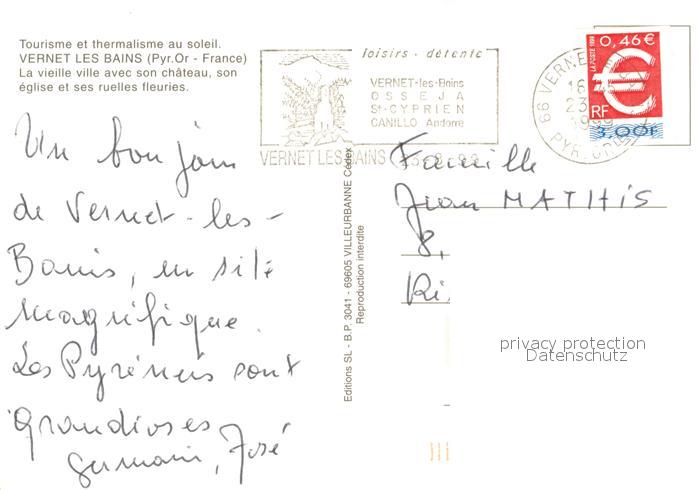 Tourisme et thermalisme au soleil.
VERNET LES BAINS (Pyr.Or - France)
La vieille ville avec son château, son
église et ses ruelles fleuries.
loisirs - détente
VERNET-les-Bains
OSSEJA
St-CYPRIEN
CANILLO Andorre
VERNET LES BAINS
66 VERNET
PYR.OR
0,46 €
LA POSTE 1999
RF
3,00F
Un bonjour
de Vernet-les-
Bains, un site
magnifique.
Les Pyrénées sont
grandioses
Germain, José
Editions SL - B.P. 3041 - 69605 VILLEURBANNE Cédex
Reproduction interdite
Famille
Jean MATHIS
8,
Ri
privacy protection
Datenschutz